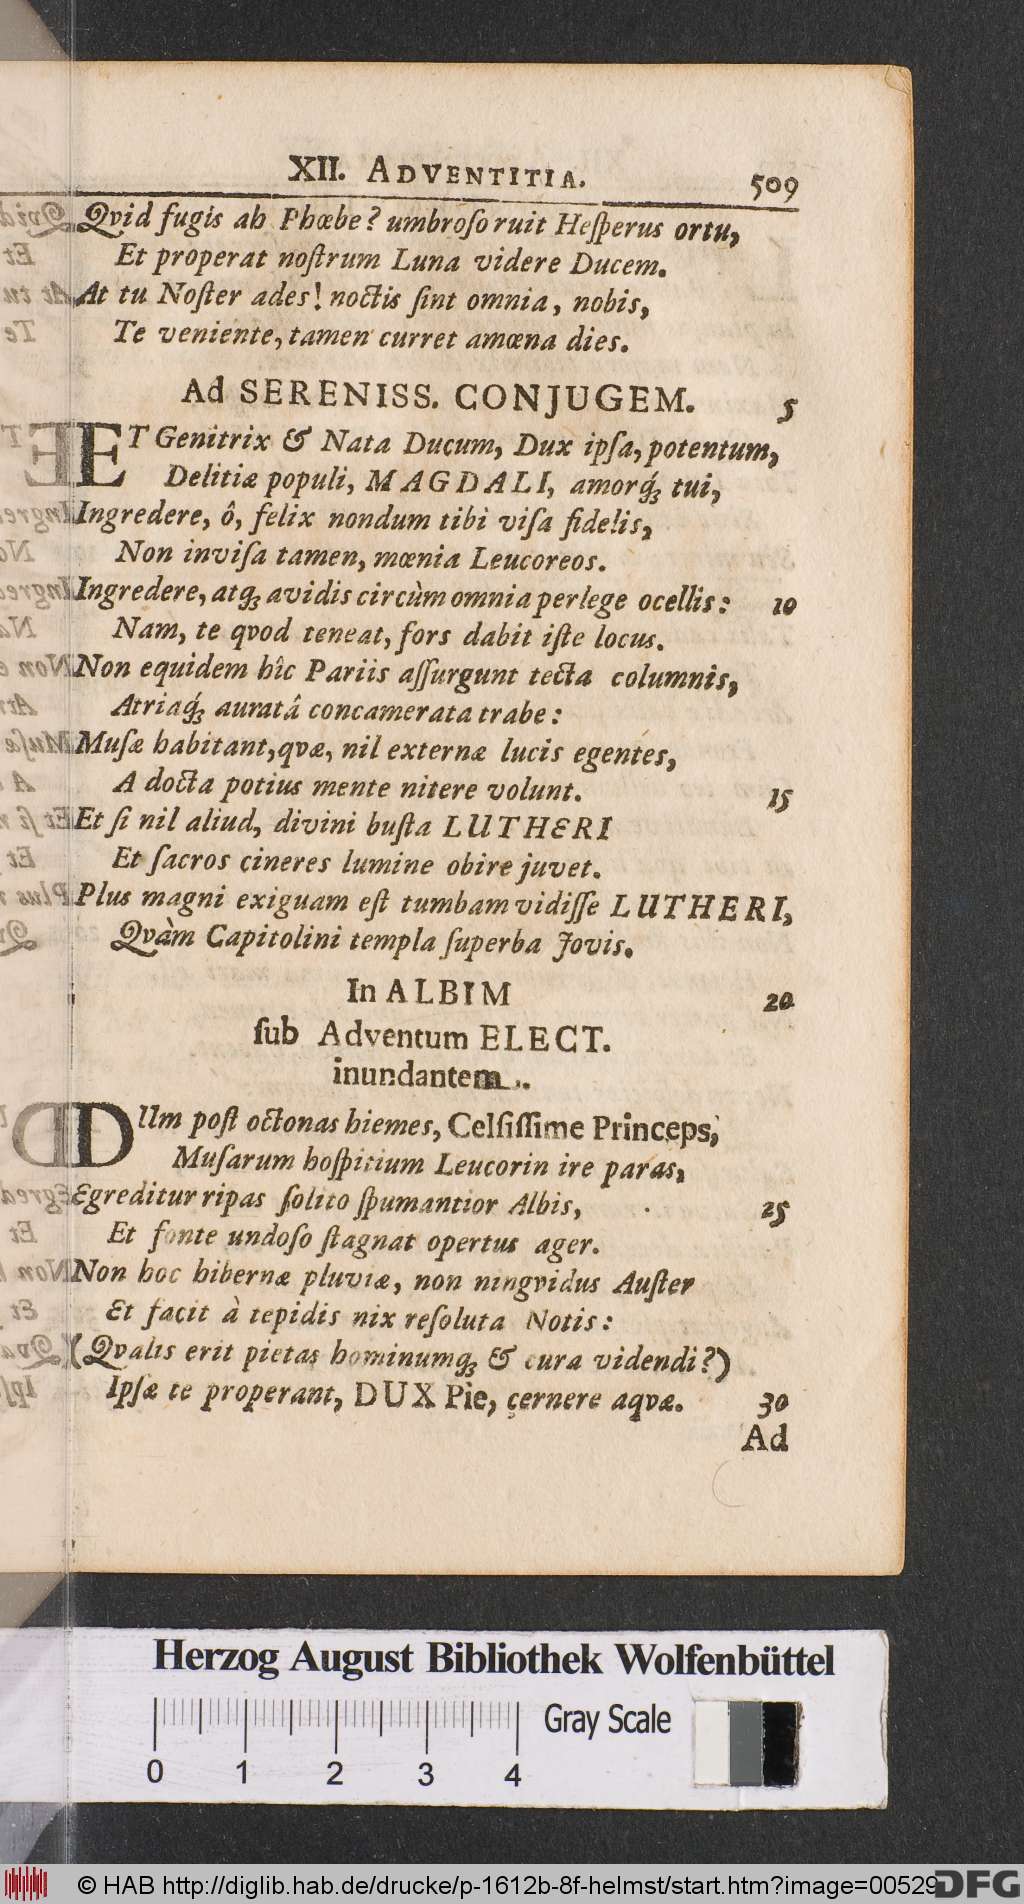 XII. ADVENTITIA. 509
Qvid fugis ah Phœbe? umbroſo ruit Heſperus ortu,
Et properat noſtrum Luna videre Ducem.
At tu Noſter ades! noctis ſint omnia, nobis,
Te veniente, tamen curret amœna dies.
Ad SERENISS. CONJUGEM. 5
ET Genitrix & Nata Ducum, Dux ipſa, potentum,
Delitiæ populi, MAGDALI, amorq́ꝫ tui,
Ingredere, ô, felix nondum tibi viſa fidelis,
Non inviſa tamen, mœnia Leucoreos.
Ingredere, atqꝫ avidis circùm omnia perlege ocellis: 10
Nam, te qvod teneat, fors dabit iſte locus.
Non equidem hîc Pariis aſſurgunt tecta columnis,
Atriaq́ꝫ auratâ concamerata trabe:
Muſæ habitant, qvæ, nil externæ lucis egentes,
A docta potius mente nitere volunt. 15
Et ſi nil aliud, divini buſta LUTHERI
Et ſacros cineres lumine obire juvet.
Plus magni exiguam eſt tumbam vidiſſe LUTHERI,
Qvàm Capitolini templa ſuperba Jovis.
In ALBIM 20
ſub Adventum ELECT.
inundantem.
DUm poſt octonas hiemes, Celſiſſime Princeps,
Muſarum hoſpitium Leucorin ire paras,
Egreditur ripas ſolito ſpumantior Albis, 25
Et fonte undoſo ſtagnat opertus ager.
Non hoc hibernæ pluviæ, non ningvidus Auſter
Et facit à tepidis nix reſoluta Notis:
(Qvalis erit pietas hominumqꝫ & cura videndi?)
Ipſæ te properant, DUX Pie, cernere aqvæ. 30
Ad
Herzog August Bibliothek Wolfenbüttel
Gray Scale
0 1 2 3 4
© HAB http://diglib.hab.de/drucke/p-1612b-8f-helmst/start.htm?image=00529
DFG